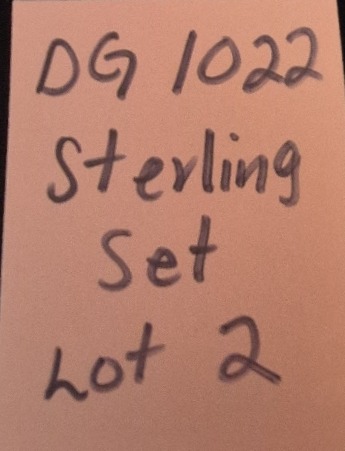 DG 1022
Sterling
Set
Lot 2